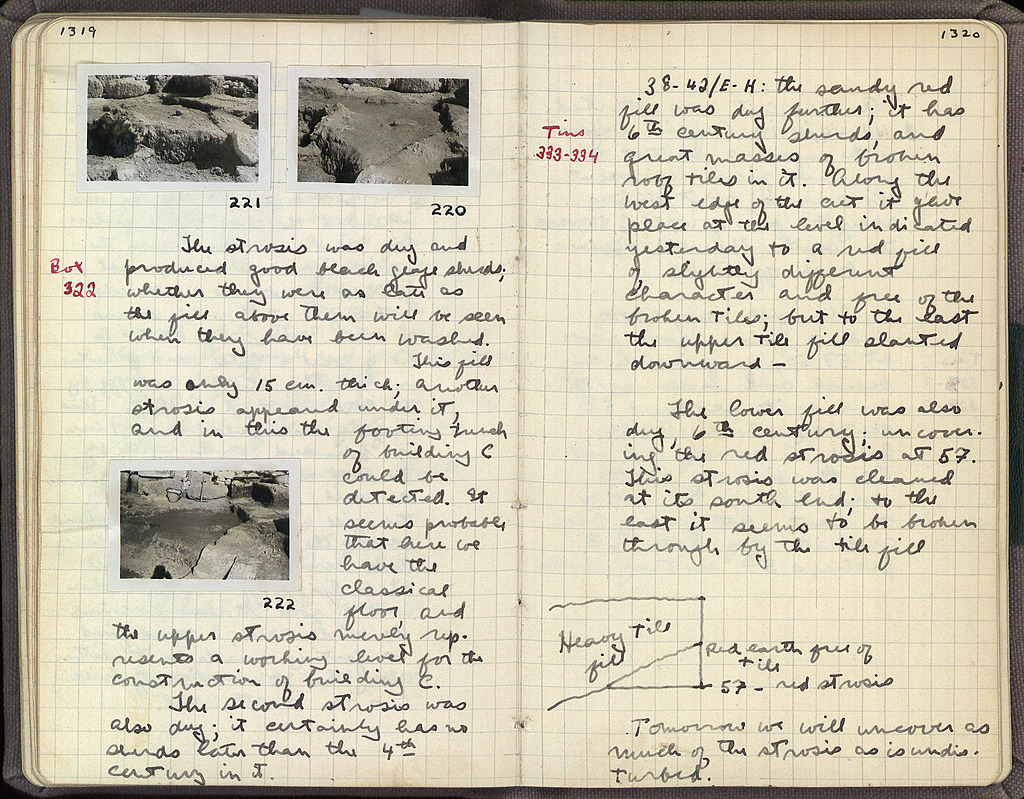 1319
221
220
The strosis was dug and
Box
322
produced good black glaze sherds;
whether they were as late as
the fill above them will be seen
when they have been washed.
This fill
was only 15 cm. thick; another
strosis appeared under it,
and in this the footing trench
of building C
could be
detected. It
seems probable
that here we
have the
classical
floor, and
222
the upper strosis merely rep-
resents a working level for the
construction of building C.
The second strosis was
also dug; it certainly has no
sherds later than the 4th
century in it.
1320
38-42/E-H: the sandy red
fill was dug further; it has
Tins
333-334
6th century sherds, and
great masses of broken
roof tiles in it. Along the
west edge of the cut it gave
place at the level indicated
yesterday to a red fill
of slightly different
character and free of the
broken tiles; but to the east
the upper tile fill slanted
downward —
The lower fill was also
dug, 6th century; uncover-
ing the red strosis at 57.
This strosis was cleaned
at its south end; to the
east it seems to be broken
through by the tile fill
Heavy tile
fill
red earth free of
tile
57 - red strosis
Tomorrow we will uncover as
much of the strosis as is undis-
turbed.